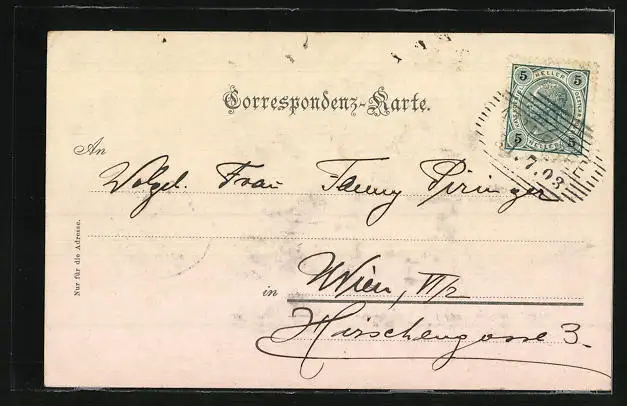 Correspondenz-Karte.
5 HELLER 5
5 HELLER 5
7.03
An
Wolgel. Frau Fanny Piringer
Nur für die Adresse.
in Wien, VI/2
Hirschengasse 3.